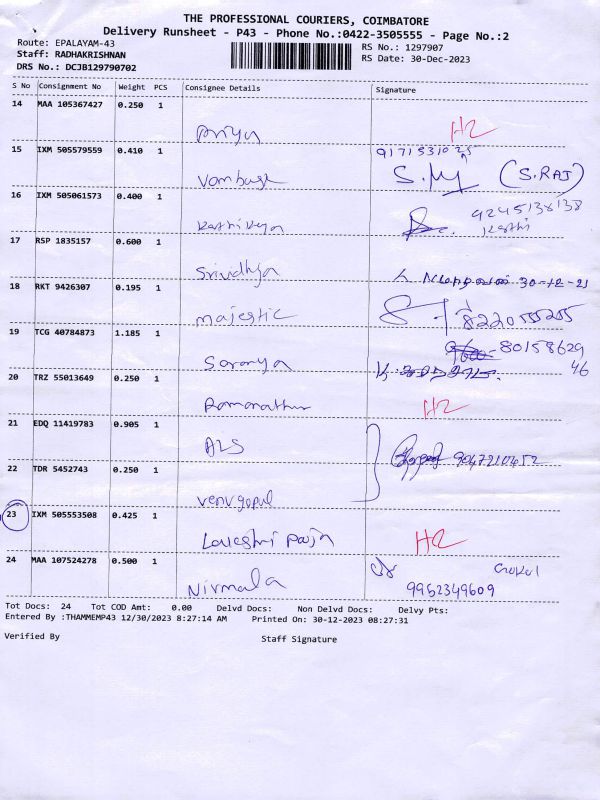 THE PROFESSIONAL COURIERS, COIMBATORE
Delivery Runsheet - P43 - Phone No.:0422-3505555 - Page No.:2
Route: EPALAYAM-43 RS No.: 1297907
Staff: RADHAKRISHNAN RS Date: 30-Dec-2023
DRS No.: DCJB129790702
S No Consignment No Weight PCS Consignee Details Signature
14 MAA 105367427 0.250 1
Priya H2
15 IXM 505579559 0.410 1
(S.RAJ)
16 IXM 505061573 0.400 1 9245138138
Karthikeya Karthi
17 RSP 1835157 0.600 1
Srividhya
18 RKT 9426307 0.195 1
majestic 8220555255
19 TCG 40784873 1.185 1 80158629
Saranya 46
20 TRZ 55013649 0.250 1
Ramanathan H2
21 EDQ 11419783 0.905 1
ALS
22 TDR 5452743 0.250 1
Venugopal
23 IXM 505553508 0.425 1
H2
24 MAA 107524278 0.500 1 Gokul
Nirmala 9952349609
Tot Docs: 24 Tot COD Amt: 0.00 Delvd Docs: Non Delvd Docs: Delvy Pts:
Entered By :THAMMEMP43 12/30/2023 8:27:14 AM Printed On: 30-12-2023 08:27:31
Verified By Staff Signature